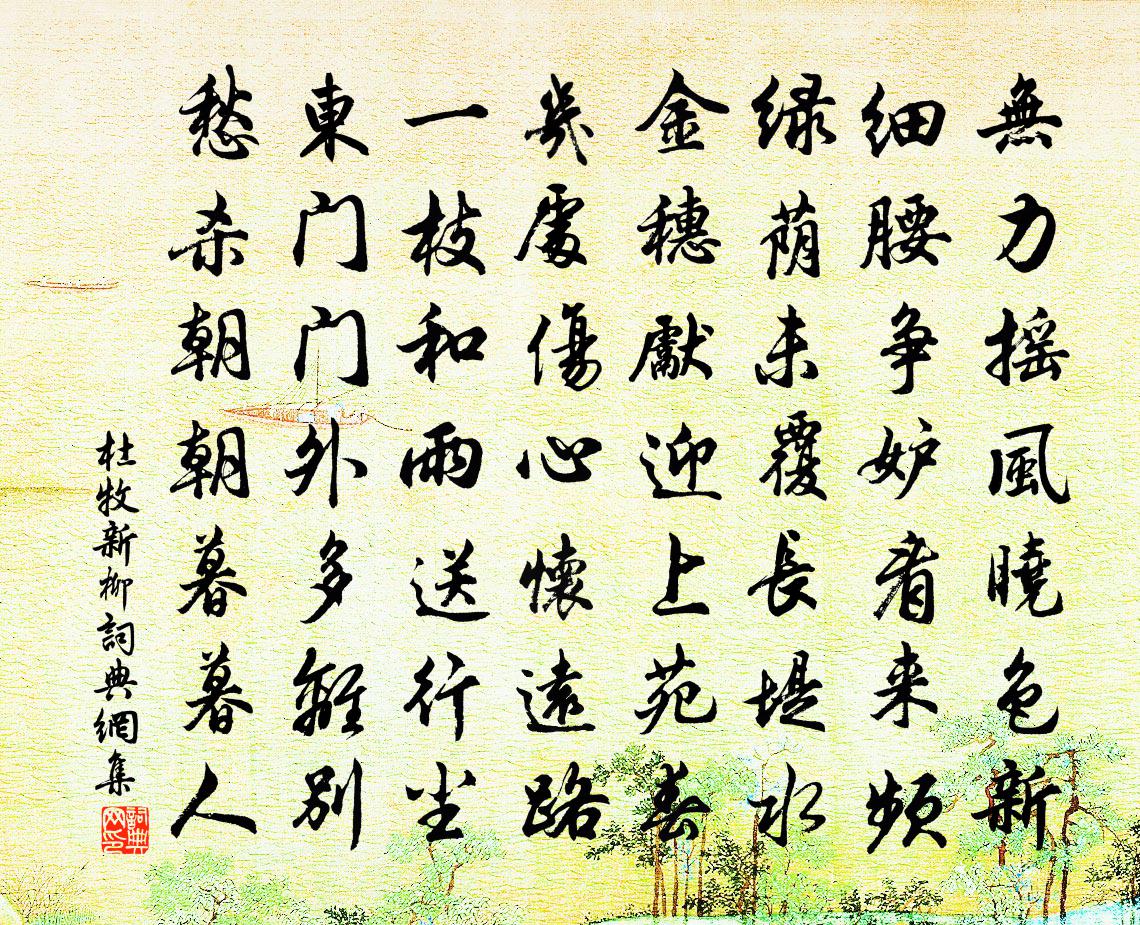 無力摇風曉色新
细腰争妒看来频
绿荫未覆長堤水
金穗獻迎上苑春
幾處傷心懷遠路
一枝和雨送行尘
東门门外多離别
愁杀朝朝暮暮人
杜牧新柳詞典網集
詞典网印